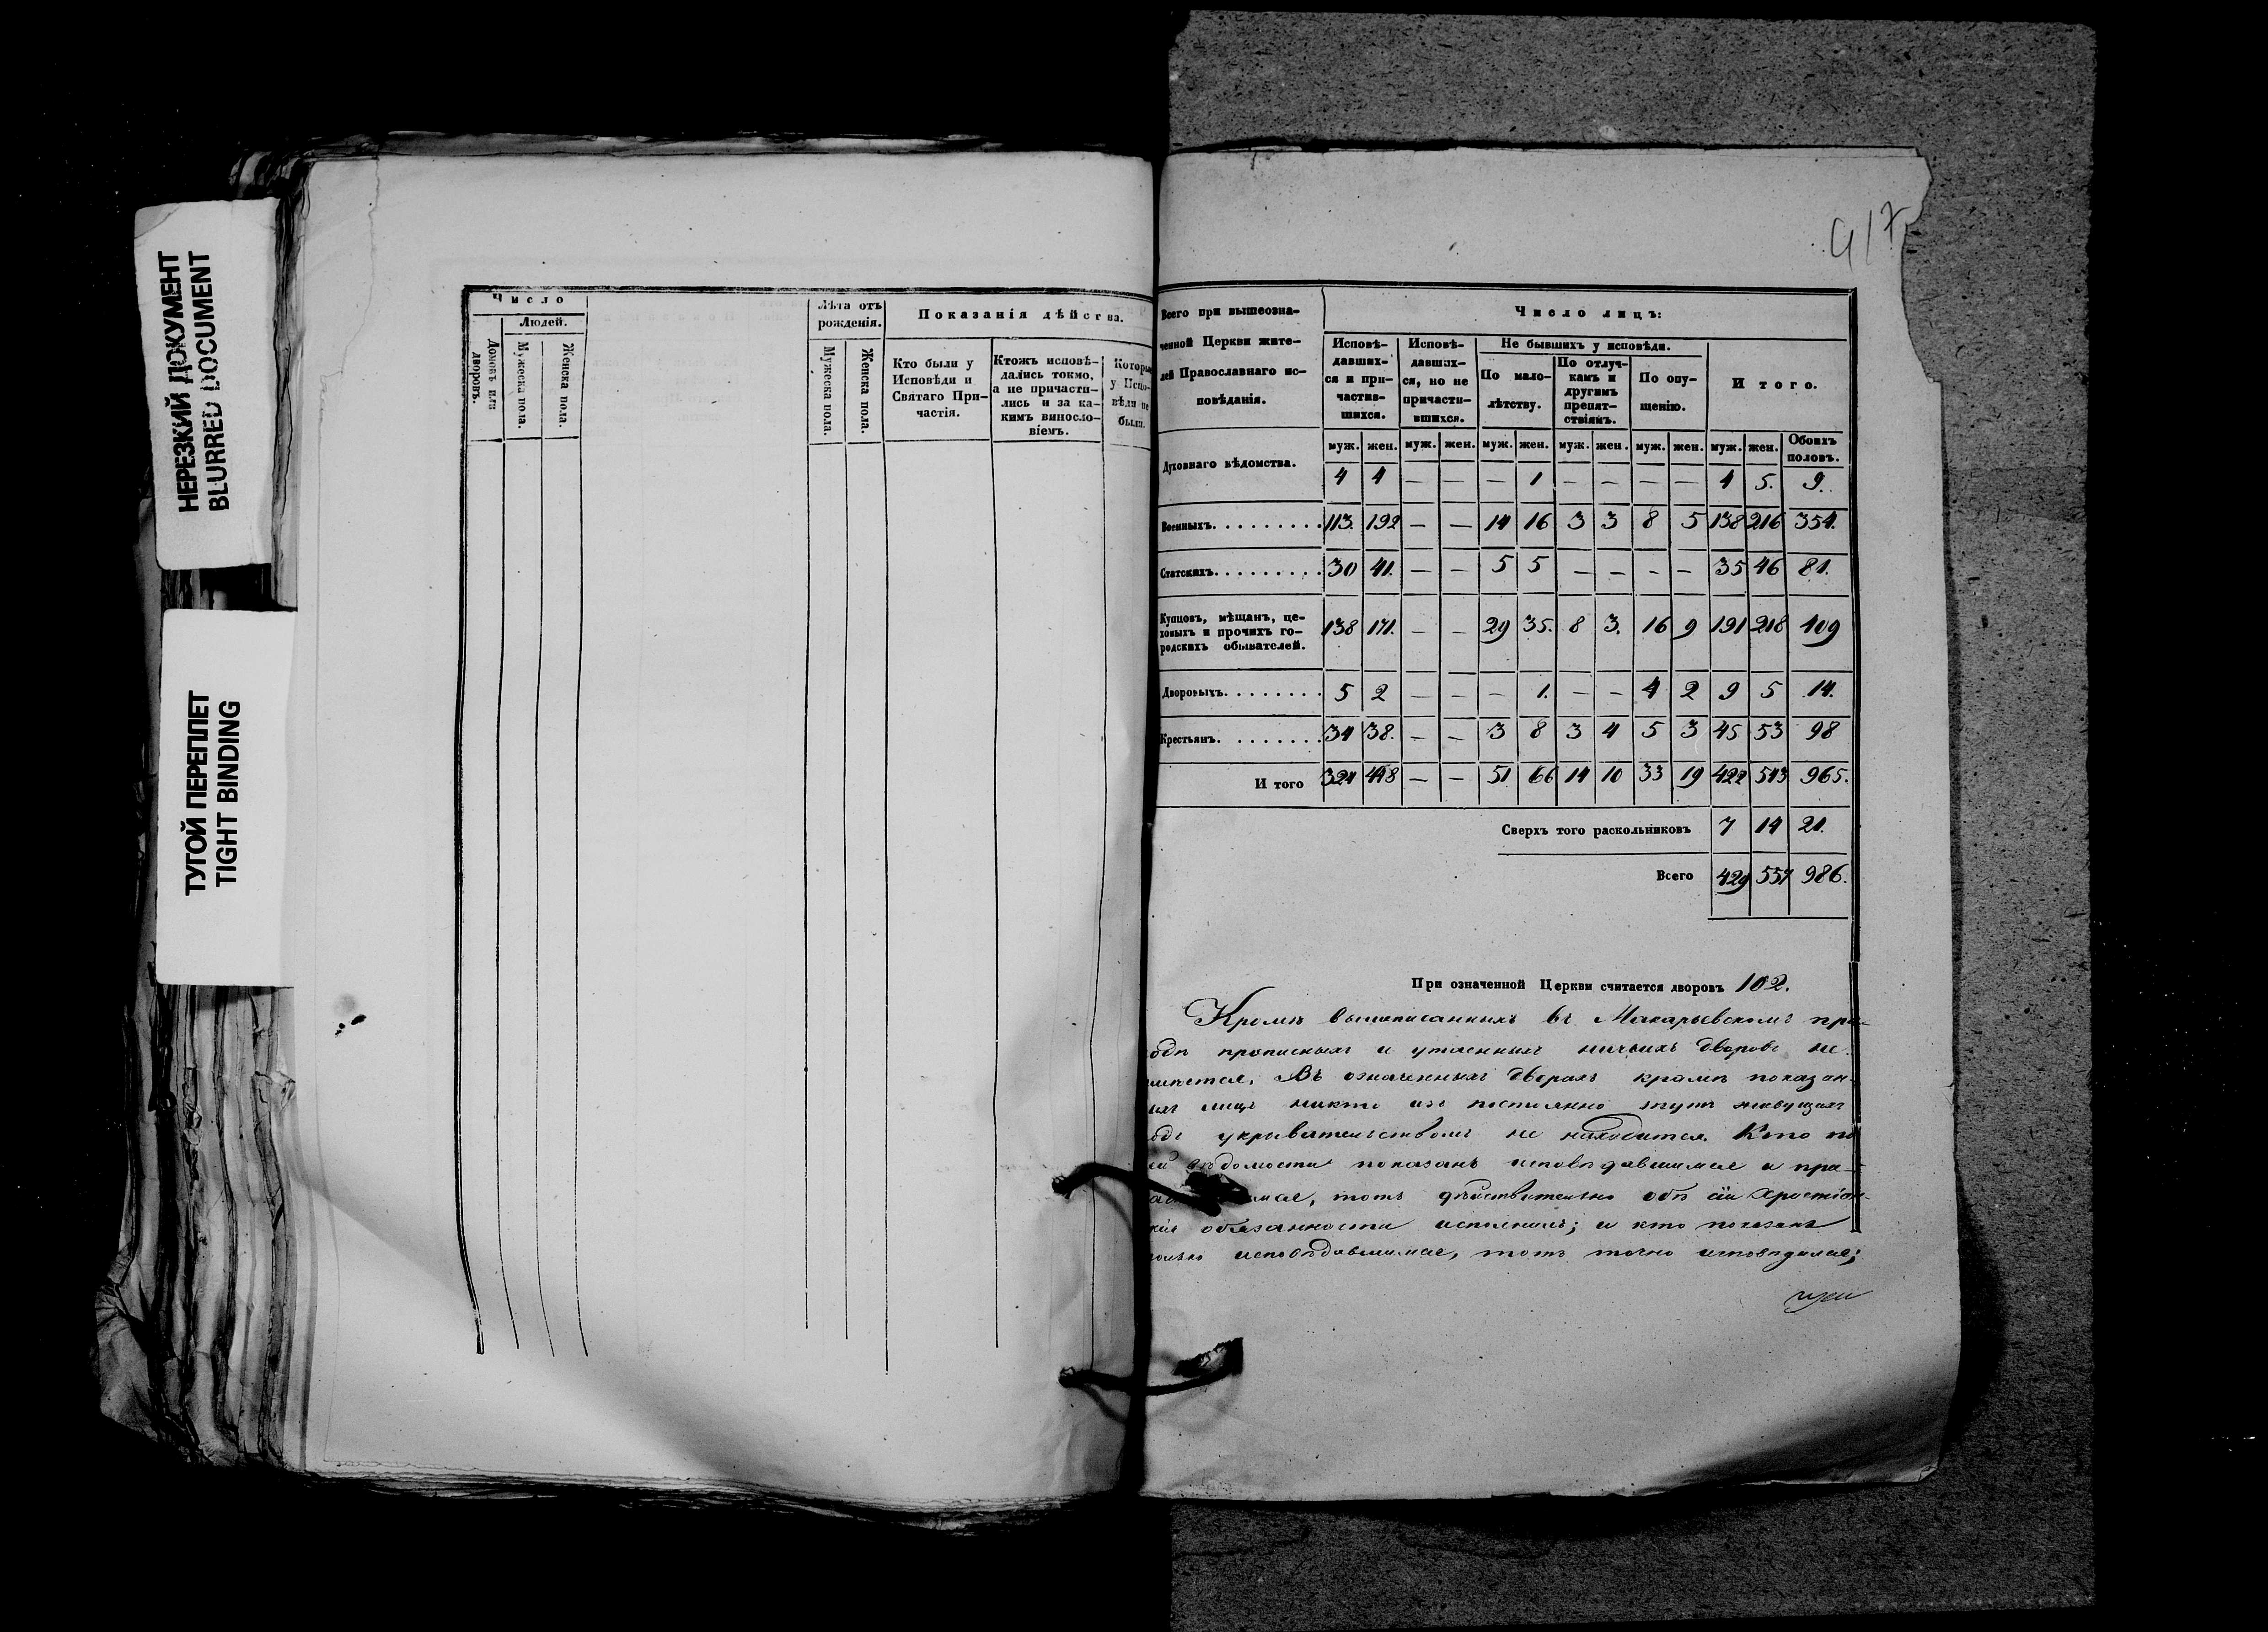 НЕРЕЗКИЙ ДОКУМЕНТ
BLURRED DOCUMENT
ТУГОЙ ПЕРЕПЛЕТ
TIGHT BINDING
Число
Людей.
Домовъ или дворовъ.
Мужеска пола.
Женска пола.
Лѣта отъ рожденія.
Мужеска пола.
Женска пола.
Показанія дѣйства.
Кто были у
Исповѣди и
Святаго При-
частія.
Ктожъ исповѣ-
дались токмо,
а не причасти-
лись и за ка-
кимъ винсло-
віемъ.
Которые
у Испо-
вѣди не
были.
417
Всего при вышеозна-
ченной Церкви жите-
лей Православнаго ис-
повѣданія.
Число лицъ:
Исповѣ-
давших-
ся и при-
частив-
шихся.
Исповѣ-
давших-
ся, но не
причасти-
вшихся.
Не бывшихъ у исповѣди.
По мало-
лѣтству.
По отлуч-
камъ и
другимъ
препят-
ствіямъ.
По опу-
щенію.
И того.
муж. жен. муж. жен. муж. жен. муж. жен. муж. жен. муж. жен. Обоихъ половъ.
Духовнаго вѣдомства. 4 4 — — — 1 — — — — 4 5. 9.
Военныхъ. 113. 192 — — 14 16 3 3 8 5 138 216 354.
Статскихъ. 30 41. — — 5 5 — — — — 35 46 81.
Купцовъ, мѣщанъ, це-
ховыхъ и прочихъ го-
родскихъ обывателей.
138 171. — — 29 35. 8 3. 16 9 191 218 409
Дворовыхъ. 5 2 — — — 1. — — 4 2 9 5 14.
Крестьянъ. 34 38. — — 3 8 3 4 5 3 45 53 98
И того 324 448 — — 51 66 14 10 33 19 422 543 965.
Сверхъ того раскольниковъ 7 14 21.
Всего 429 557 986.
При означенной Церкви считается дворовъ 102.
Кромѣ вышеписанныхъ въ Макарьевскомъ при-
одѣ прописныхъ и утаенныхъ ничьихъ дворовъ не
имѣется. Въ означенныхъ дворахъ кромѣ показан-
ихъ лицъ никто изъ постоянно тутъ живущихъ
одъ укрывательствомъ не находится. Кто по
ей вѣдомости показанъ исповѣдавшимся и при-
тотъ дѣйствительно обѣ сіи Христіан-
кія обязанности исполнилъ; и кто показанъ
олько исповѣдавшимся, тотъ точно исповѣдался;